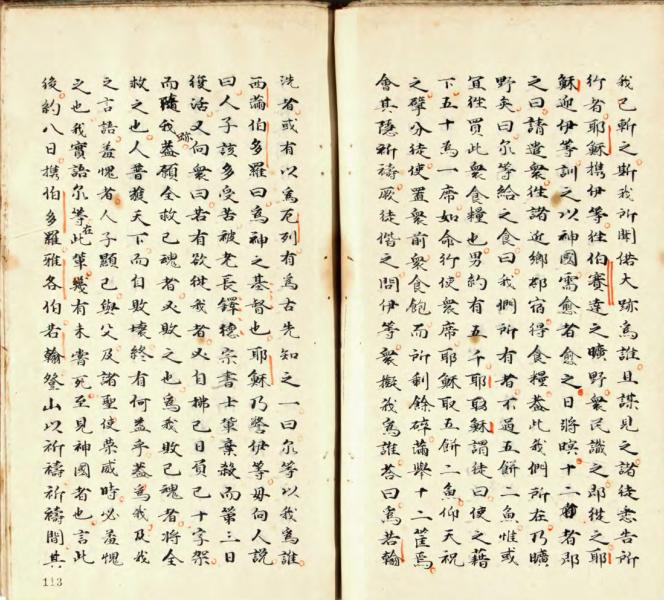 我已斬之斯我所聞偌大跡為誰且謀見之諸徒悉告所
行者耶穌攜伊等往伯賽達之曠野衆民識之即從之耶
穌迎伊等訓之以神國需愈者愈之日將暝十二者即
之曰請遣衆徃諸近鄉邨宿得食糧蓋此我們所在乃曠
野矣曰尔等給之食曰我們所有者不過五餅二魚惟或
宜徃買此衆食糧也男約有五千耶穌謂徒曰使之藉
下五十為一席如命行使衆席耶穌取五餅二魚仰天祝
之擘分徒使置衆前衆食飽而所剩餘碎䔇舉十二筐焉
會其隱祈禱厥徒偕之問伊等衆擬我為誰答曰為若翰
洗者或有以為厄列有為古先知之一曰尔等以我為誰
西䔇伯多羅曰為神之基督也耶穌乃嚴伊等毋向人說
曰人子該多受苦被老長鐸德宗書士等棄殺而第三日
復活又向衆曰若有欲從我者又自拂己日負己十字架
而隨我跡蓋願全救己魂者又敗之也為我敗己魂者將全
救之也人普獲天下而自敗壞終有何益乎蓋為我及我
之言語羞愧者人子顯己與父及諸聖使榮威時必羞愧
之也我實語尔等在此輩幾有未嘗死至見神國者也言此
後約八日攜伯多羅雅各伯若翰登山以祈禱祈禱間其
113